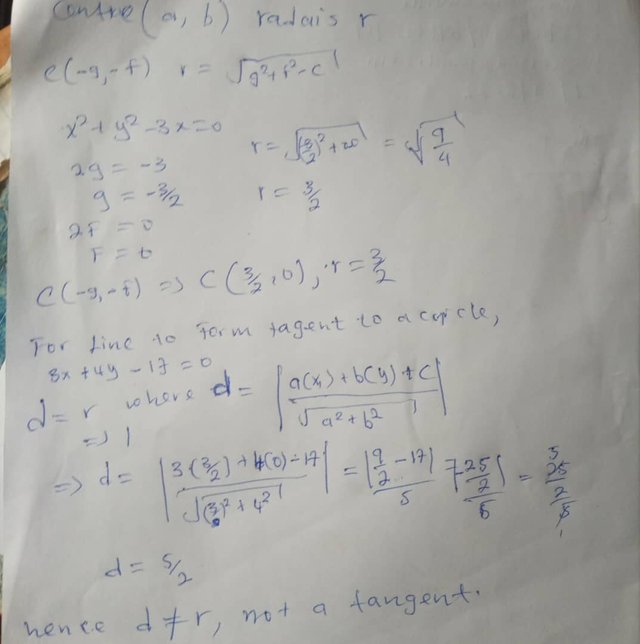 Centre (a, b) radais r
C(-g,-f) r = √g²+f²-c
x²+y²-3x=0 r = √(3/2)²+20 = √9/4
2g = -3
g = -3/2 r = 3/2
2F = 0
F = 0
C(-g,-f) => C(3/2,0), r=3/2
For Line to Form tagent to a circle,
3x+4y-17=0
d=r where d= |a(x)+b(y)+c / √a²+b²|
=> 1
=> d= |3(3/2)+4(0)-17 / √(3)²+4²| = |9/2-17| / 5 25/2 / 5 = 25/2 / 5
d = 5/2
hence d≠r, not a tangent.